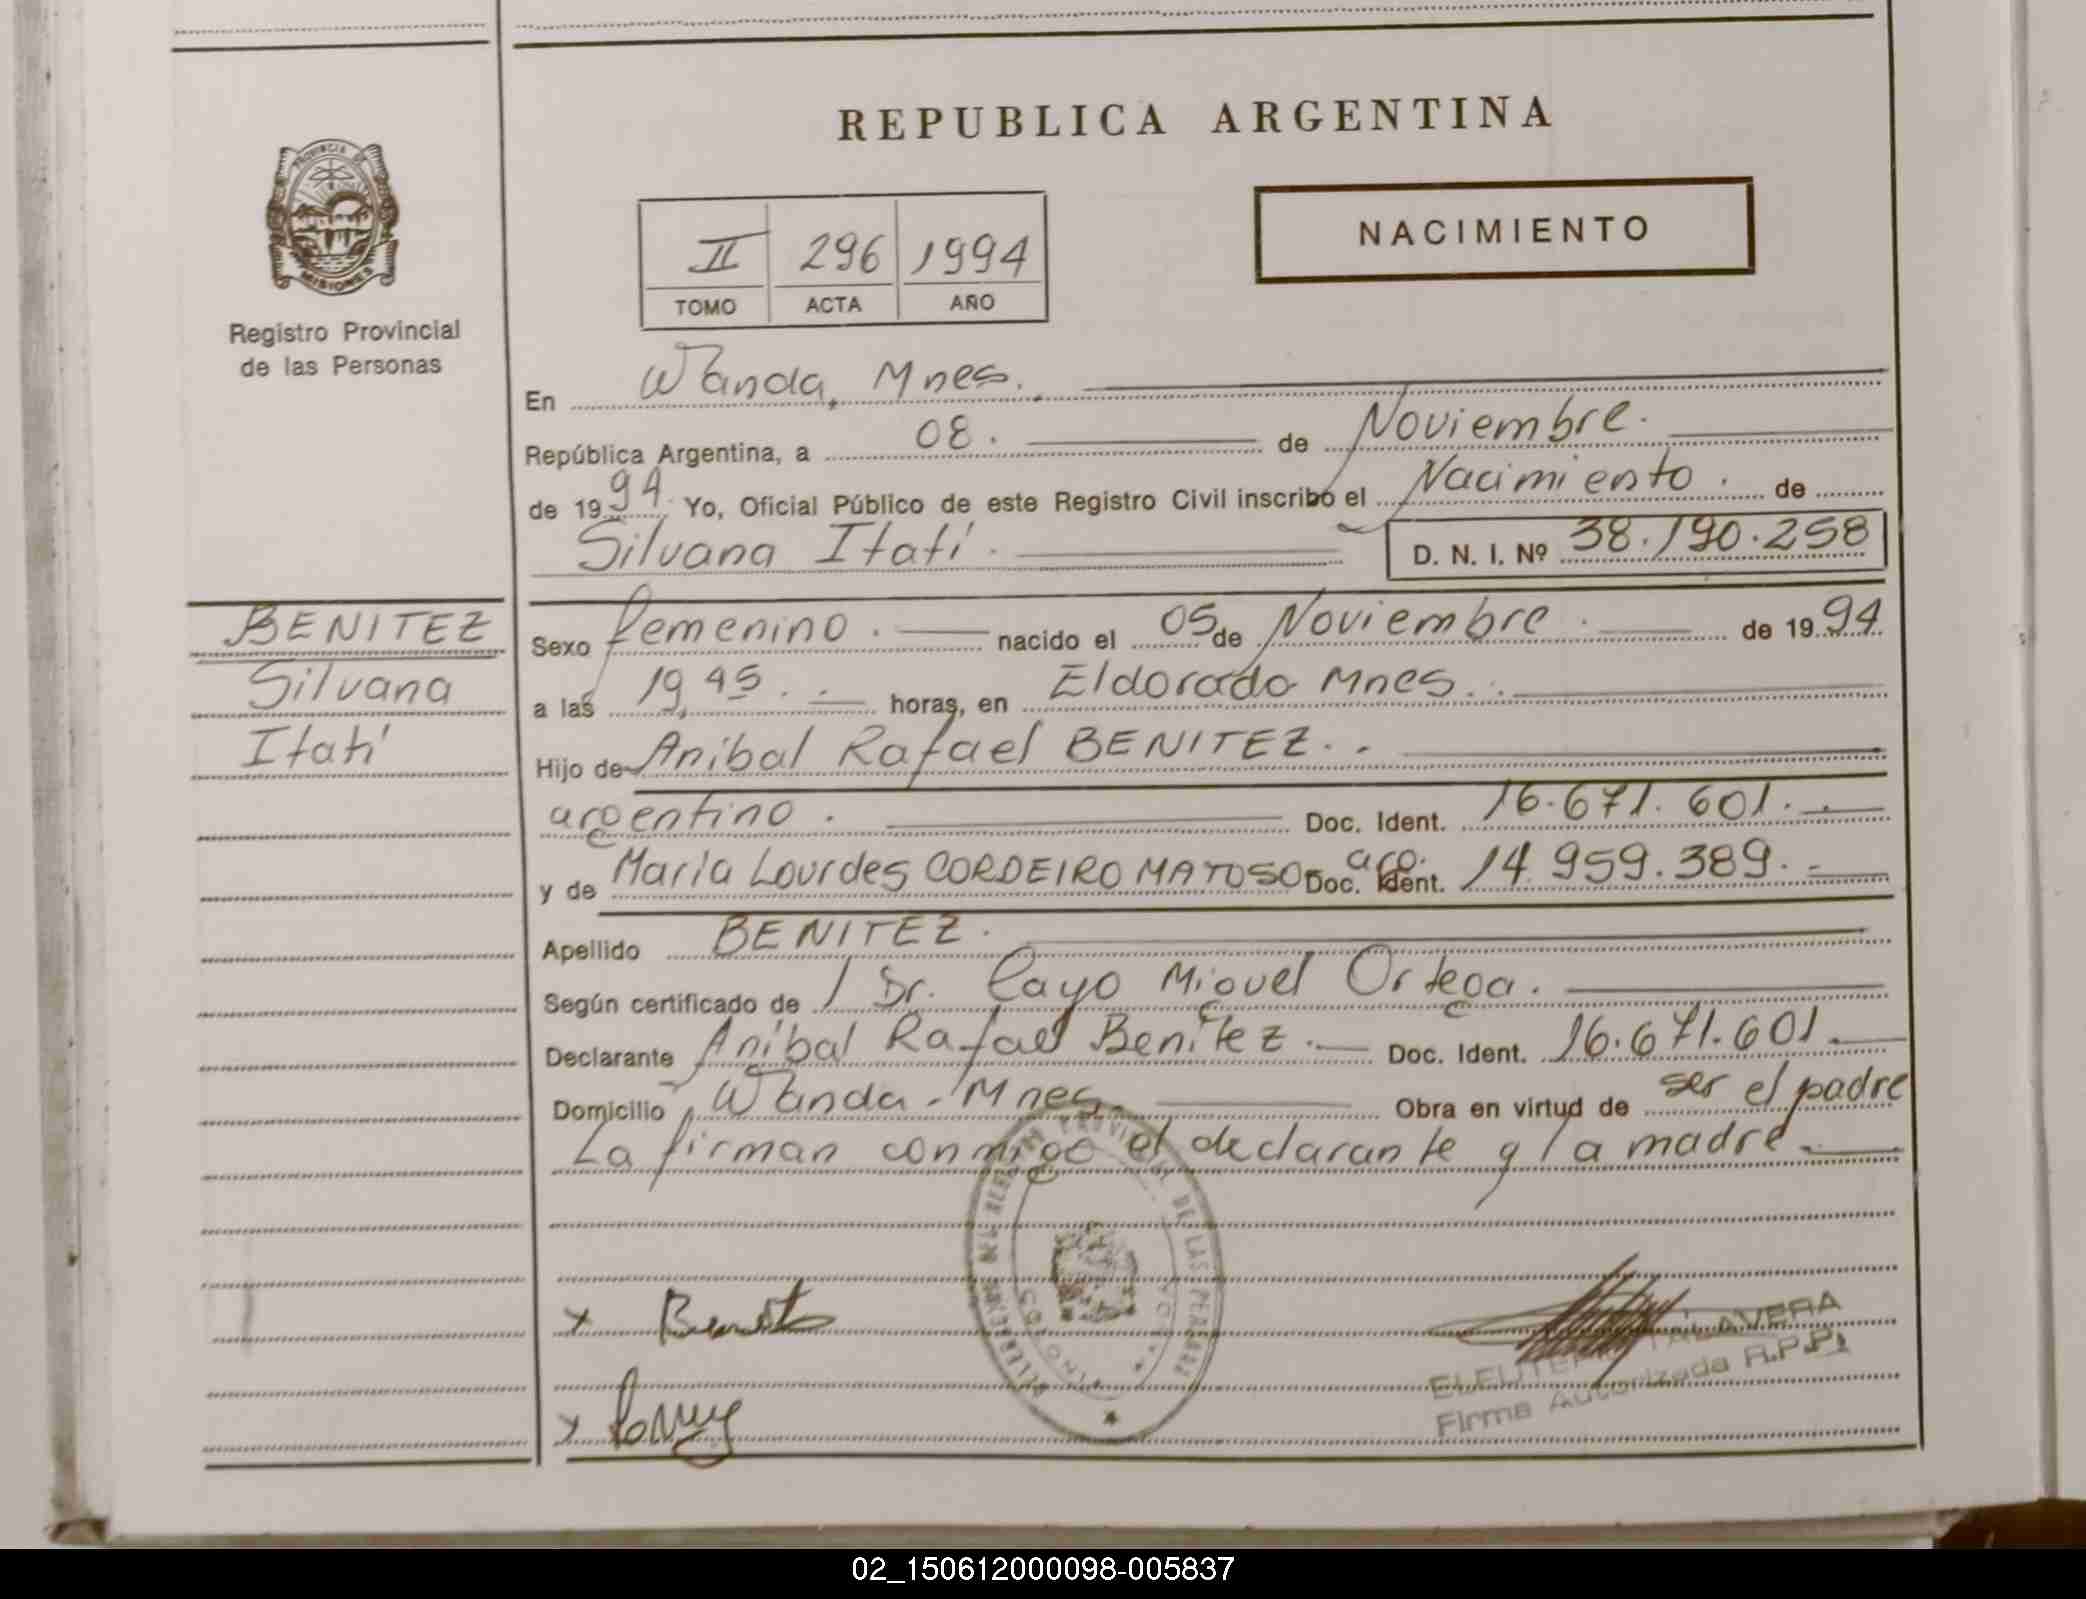 REPUBLICA ARGENTINA
PROVINCIA DE
MISIONES
Registro Provincial
de las Personas
II 296 1994
TOMO ACTA AÑO
NACIMIENTO
En Wanda, Mnes.
República Argentina, a 08. de Noviembre.
de 1994. Yo, Oficial Público de este Registro Civil inscribo el Nacimiento. de
Silvana Itatí. D. N. I. Nº 38.190.258
BENITEZ
Silvana
Itatí
Sexo femenino. nacido el 05 de Noviembre. de 1994
a las 19,45. horas, en Eldorado Mnes.
Hijo de Anibal Rafael BENITEZ.
argentino. Doc. Ident. 16.671.601.
y de Maria Lourdes CORDEIRO MATOSO arg. Doc. Ident. 14.959.389.
Apellido BENITEZ.
Según certificado de Dr. Cayo Miguel Ortega.
Declarante Aníbal Rafael Benítez. Doc. Ident. 16.671.601.
Domicilio Wanda - Mnes. Obra en virtud de ser el padre
La firman conmigo el declarante y la madre
PROVINCIAL DE LAS PERSONAS
x Benitez
x
TALAVERA
Firma Autorizada R.P.P.
02_150612000098-005837